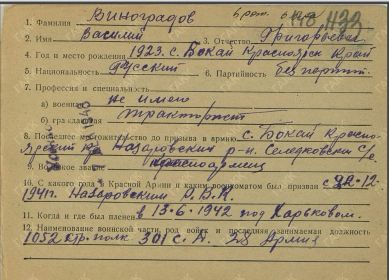 1. Фамилия Виноградов
2. Имя Василий 3. Отчество Григорьевич
4. Год и место рождения 1923. с. Бокай Красноярск Край
5. Национальность Русский 6. Партийность безпартий.
7. Профессия и специальность
а) военная не имею
б) гражданская тракторист
8. Последнее местожительство до призыва в армию с. Бокай Красно-
ярский Кр. Назаровский р-н. Селедковский С/с.
9. Воинское звание Красноармеец
10. С какого года в Красной Армии и каким военкоматом был призван с 22-12-
1941г. Назаровским Р.В.К.
11. Когда и где был пленен в 13-6-1942 под Харьковом.
12. Наименование воинской части, род войск и последняя занимаемая должность
1052 стр. полк 301 с. д. 28 Армия